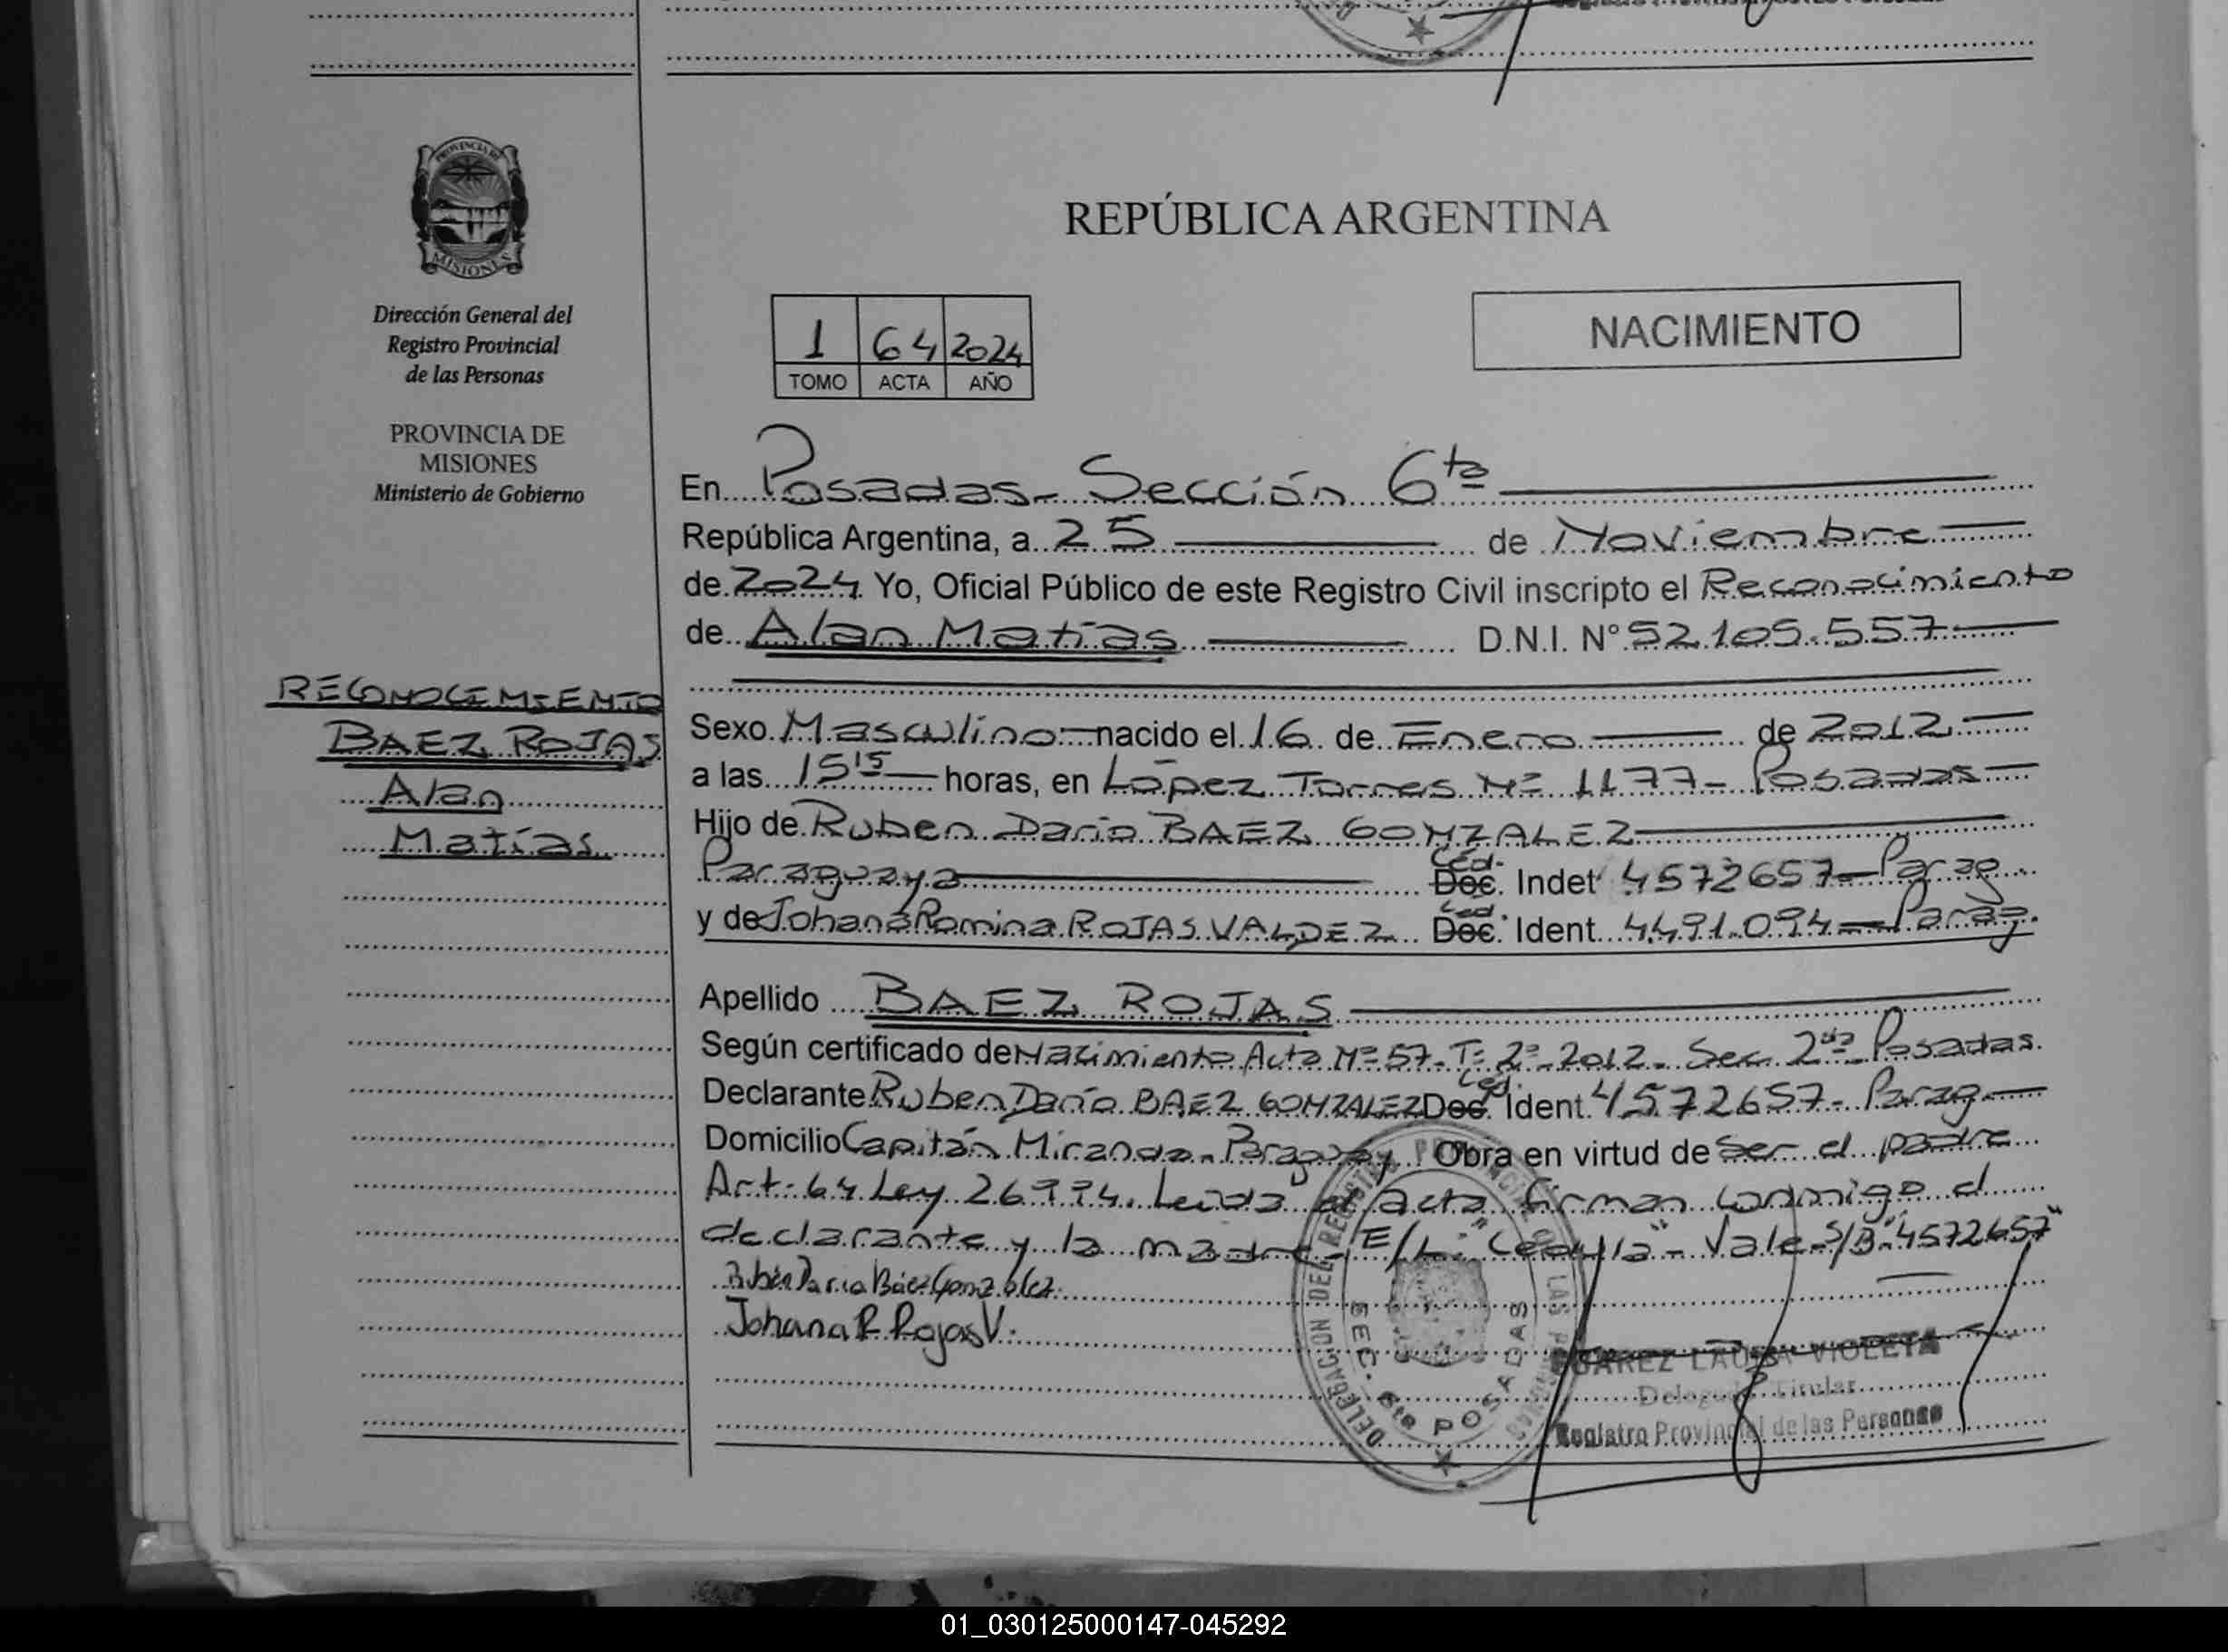 PROVINCIA DE
MISIONES
Dirección General del
Registro Provincial
de las Personas
PROVINCIA DE
MISIONES
Ministerio de Gobierno
RECONOCIMIENTO
BAEZ ROJAS
Alan
Matías
REPÚBLICA ARGENTINA
1 64 2024
TOMO ACTA AÑO
NACIMIENTO
En Posadas - Sección 6ta
República Argentina, a 25 de Noviembre
de 2024 Yo, Oficial Público de este Registro Civil inscripto el Reconocimiento
de Alan Matías D.N.I. N° 52.105.557
Sexo Masculino nacido el 16 de Enero de 2012
a las 15 15 horas, en López Torres Nº 1177 - Posadas
Hijo de Ruben Dario BAEZ GONZALEZ
Paraguaya Céd. Doc. Indet 4572657 - Parag.
y de Johana Romina ROJAS VALDEZ Ced. Doc. Ident. 4.491.094 - Parag.
Apellido BAEZ ROJAS
Según certificado de Nacimiento Acta Nº 57 - Tº 2º - 2012 - Sec. 2da Posadas.
Declarante Ruben Darío BAEZ GONZALEZ Céd. Doc. Ident. 4572657 - Parag
Domicilio Capitán Miranda - Paraguay Obra en virtud de ser el padre
Art. 64 Ley 26994. Leída el Acta firman conmigo el
declarante y la madre - E/L: "Cedula" - Vale - S/B "4572657"
Rubén Dario Báez Gonzalez
Johana R. Rojas V.
DELEGACION DEL REGISTRO PROVINCIAL DE LAS PERSONAS
SEC. 6ta POSADAS
SUAREZ LAURA VIOLETA
Delegada Titular
Registro Provincial de las Personas
01_030125000147-045292